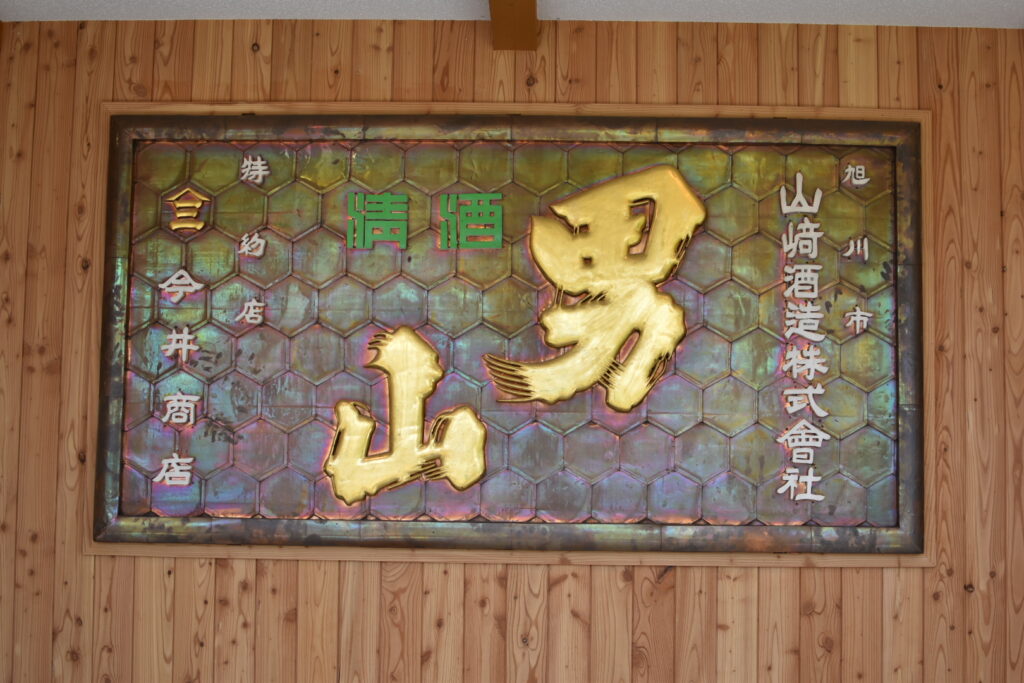 旭川市
山﨑酒造株式會社
男山
清酒
特約店
三
今井商店